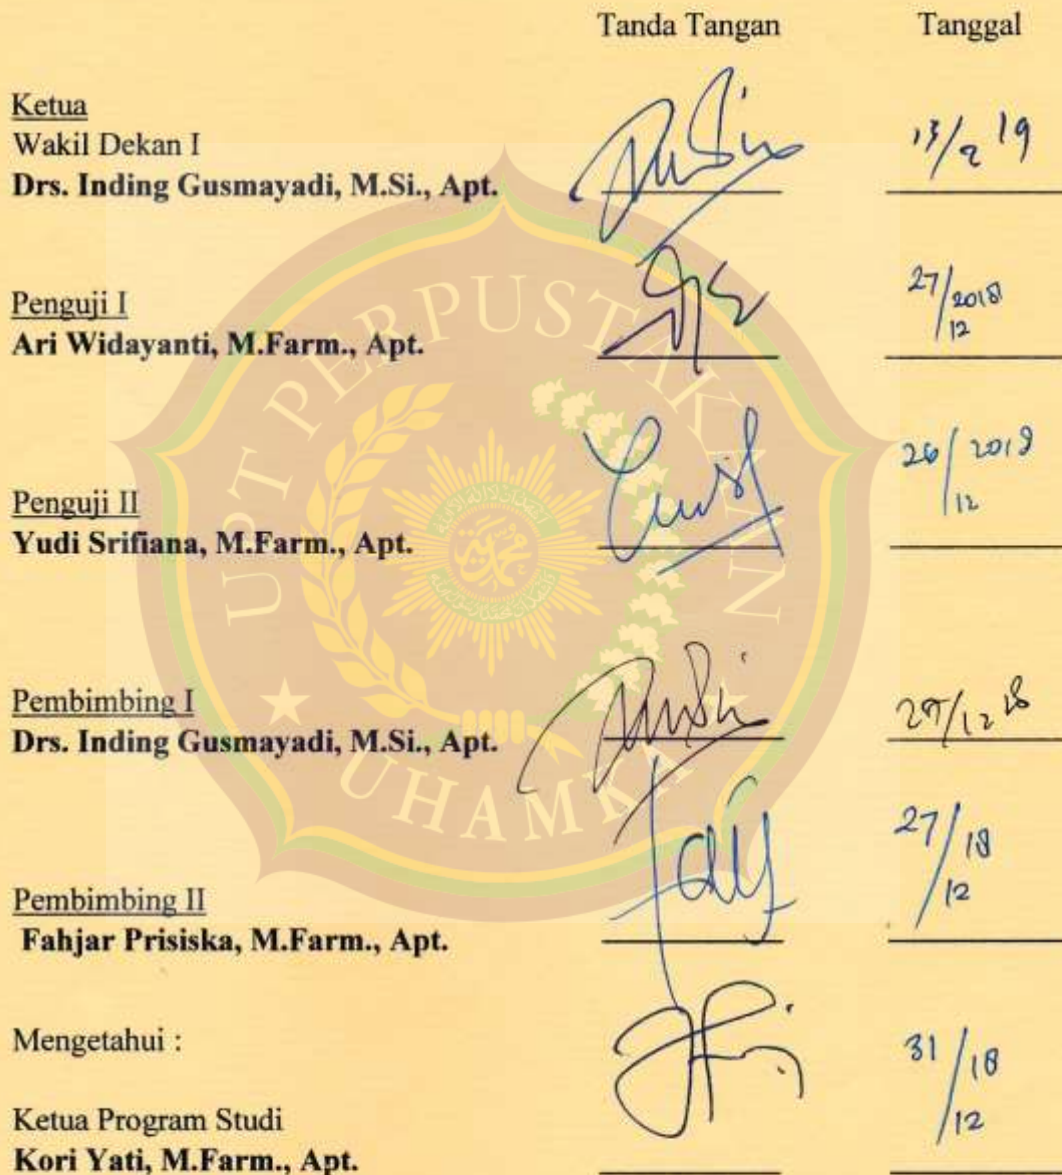 Tanda Tangan Tanggal
Ketua
Wakil Dekan I
Drs. Inding Gusmayadi, M.Si., Apt. 13/2 19
Penguji I
Ari Widayanti, M.Farm., Apt. 27/12 2018
Penguji II
Yudi Srifiana, M.Farm., Apt. 26/12 2018
Pembimbing I
Drs. Inding Gusmayadi, M.Si., Apt. /12 18
Pembimbing II
Fahjar Prisiska, M.Farm., Apt. 27/12 18
Mengetahui :
Ketua Program Studi
Kori Yati, M.Farm., Apt. 31/12 18
UPT PERPUSTAKAAN
UHAMKA